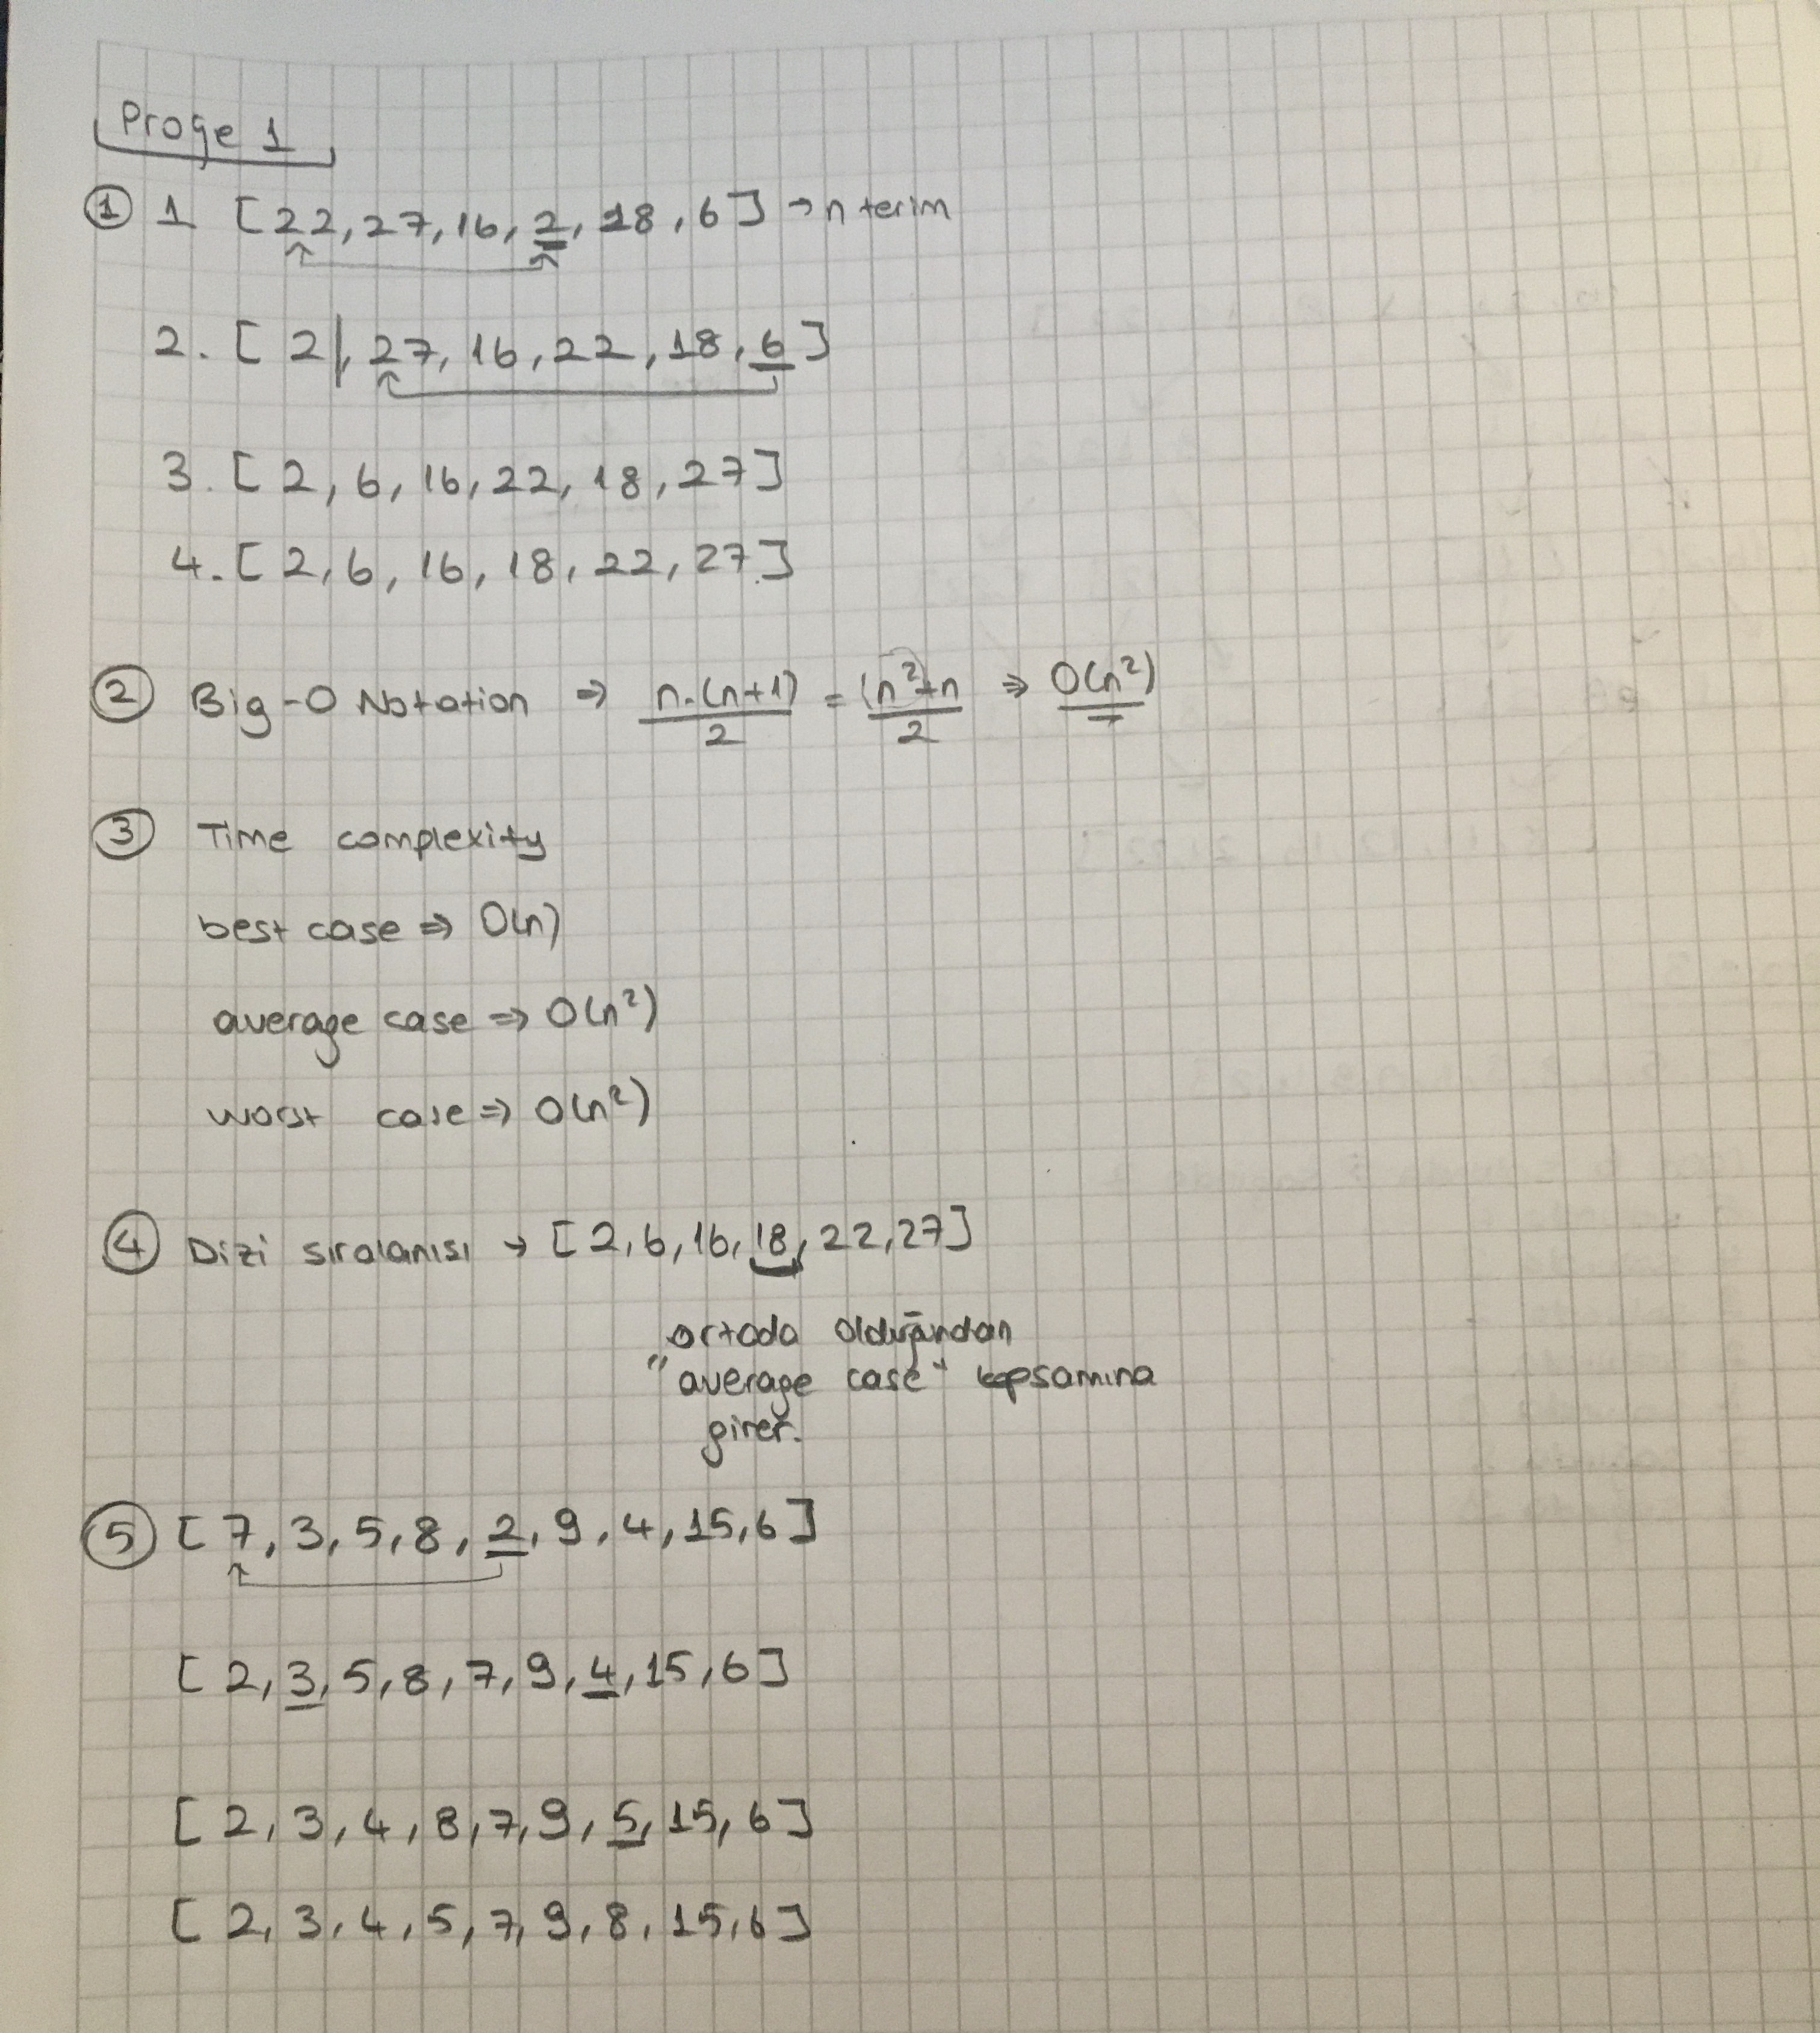 Proge 1
① 1 [22, 27, 16, 2, 18, 6] → n terim
2. [ 2|, 27, 16, 22, 18, 6 ]
3. [ 2, 6, 16, 22, 18, 27]
4. [ 2, 6, 16, 18, 22, 27]
② Big-O Notation ⇒ n.(n+1)/2 = (n²+n)/2 ⇒ O(n²)
③ Time complexity
best case ⇒ O(n)
average case ⇒ O(n²)
worst case ⇒ O(n²)
④ Dizi sıralanısı → [ 2, 6, 16, 18, 22, 27]
ortada olduğundan
"average case" kapsamına
girer.
⑤ [ 7, 3, 5, 8, 2, 9, 4, 15, 6]
[ 2, 3, 5, 8, 7, 9, 4, 15, 6]
[ 2, 3, 4, 8, 7, 9, 5, 15, 6]
[ 2, 3, 4, 5, 7, 9, 8, 15, 6]